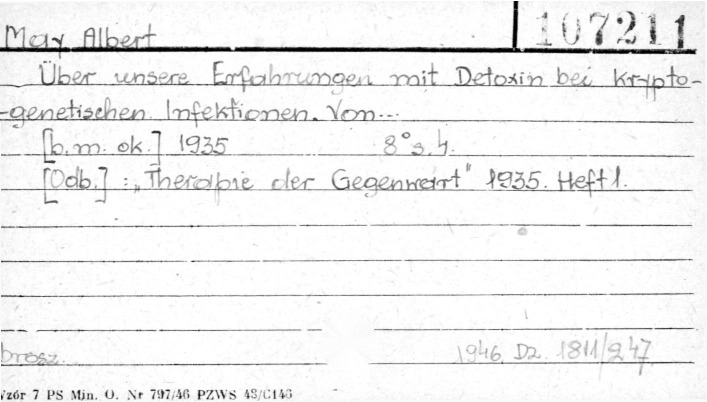 May Albert 107211
Über unsere Erfahrungen mit Detoxin bei Krypto-
-genetischen Infektionen. Von...
[b.m. ok.] 1935 8° s. 4.
[Odb.]: „Therapie der Gegenwart" 1935. Heft 1.
brosz. 1946. Dz. 1811/247
Wzór 7 PS Min. O. Nr 797/46 PZWS 43/C146